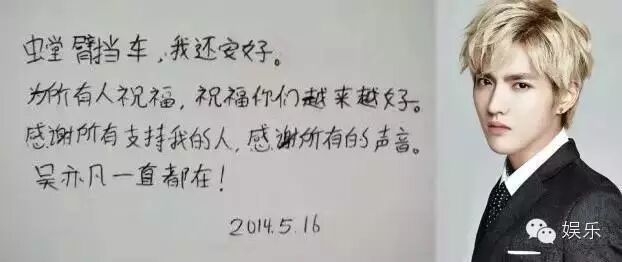 螳臂挡车,我还安好。
为所有人祝福,祝福你们越来越好。
感谢所有支持我的人,感谢所有的声音。
吴亦凡一直都在!
2014.5.16
娱乐